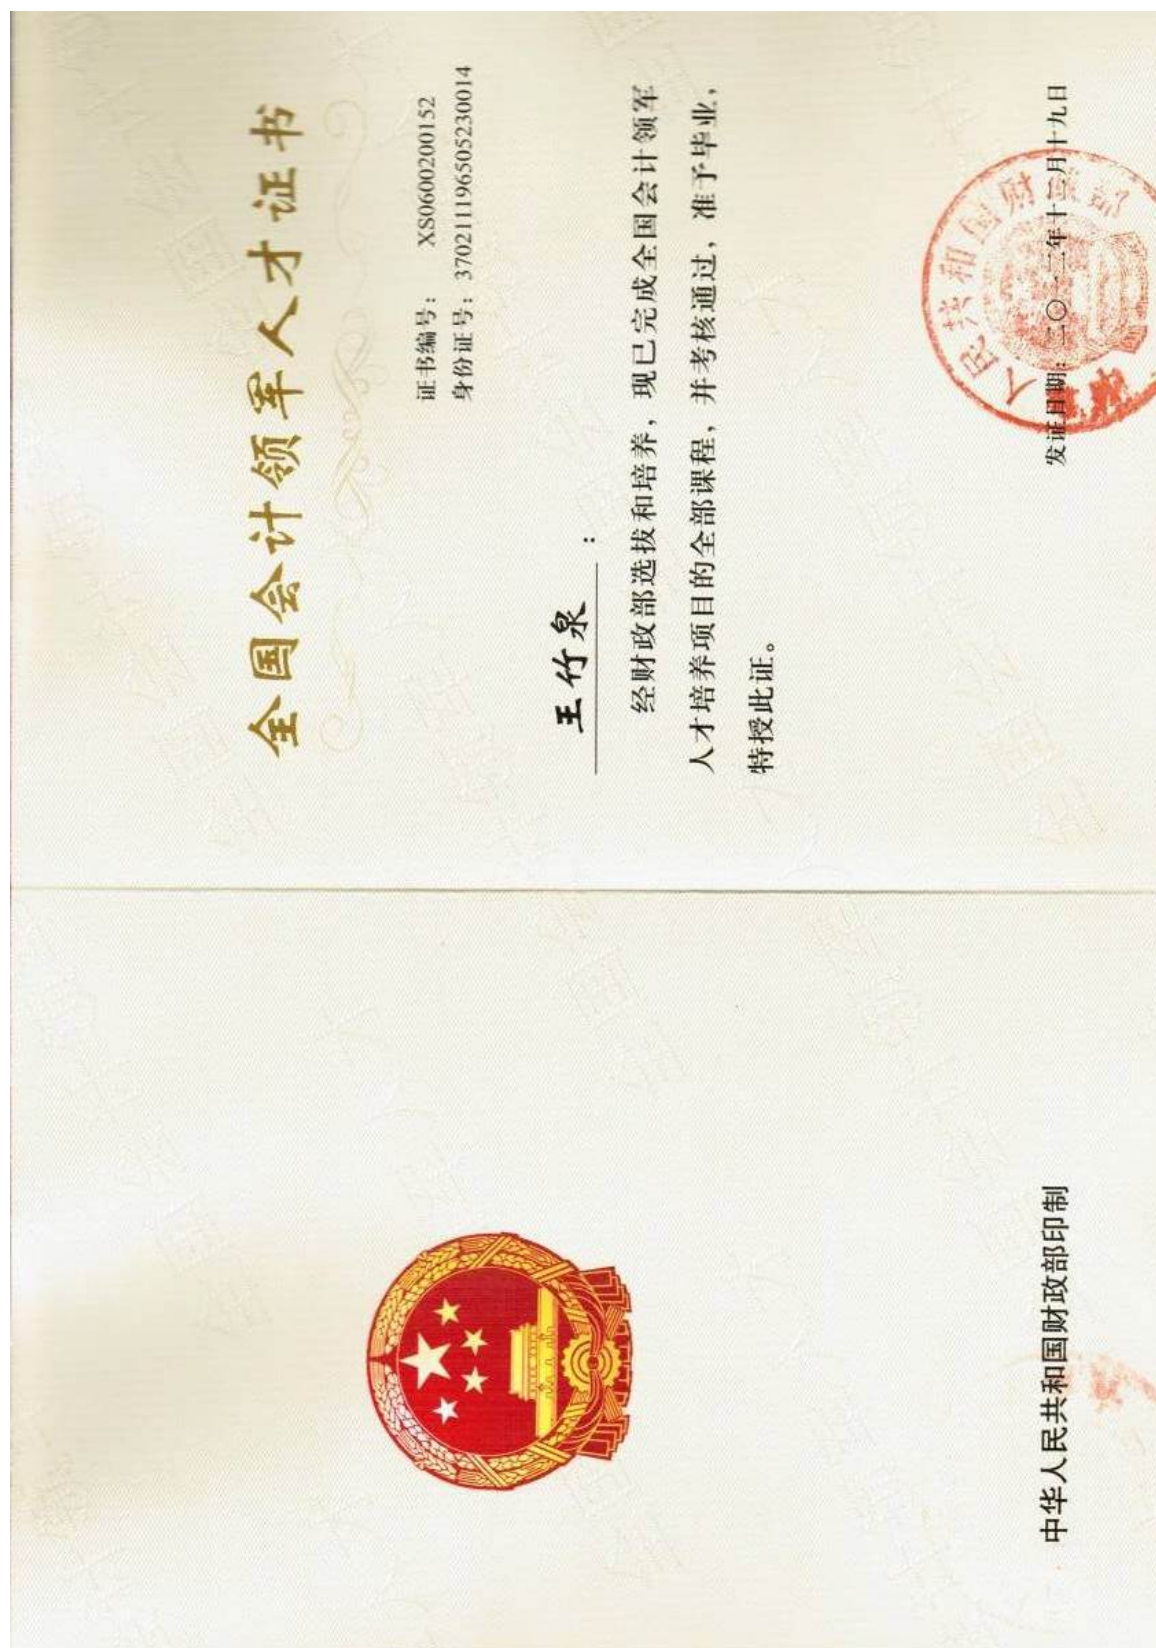 全国会计领军人才证书
证书编号： XS0600200152
身份证号：370211196505230014
王竹泉：
经财政部选拔和培养，现已完成全国会计领军
人才培养项目的全部课程，并考核通过，准予毕业，
特授此证。
人民共和国财政部
发证日期：二〇一二年十二月十九日
中华人民共和国财政部印制